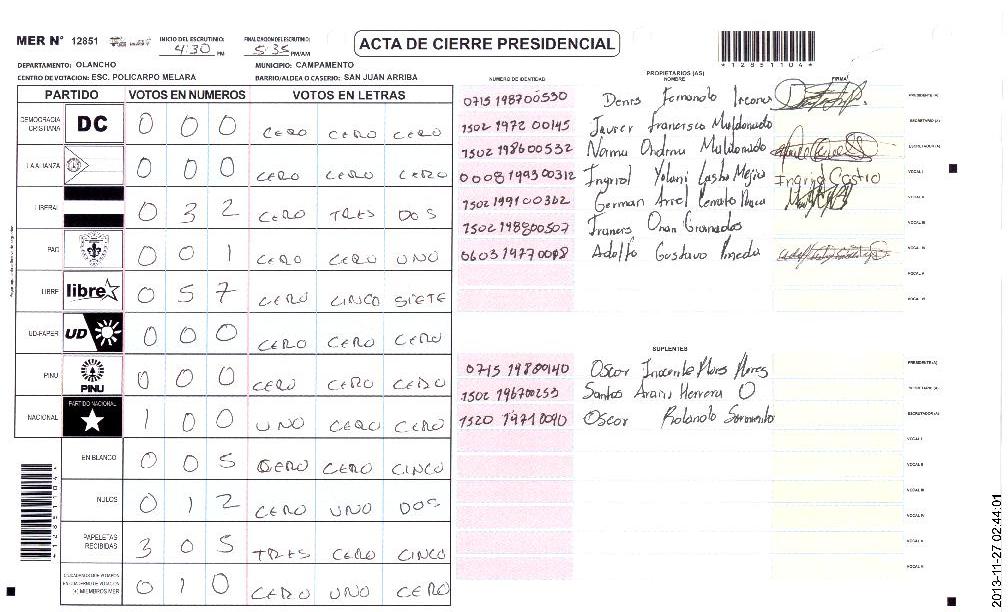 MER N° 12851
INICIO DEL ESCRUTINIO: 4:30 PM
FINALIZACION DEL ESCRUTINIO: 5:35 PM/AM
ACTA DE CIERRE PRESIDENCIAL
*12851104*
DEPARTAMENTO: OLANCHO
MUNICIPIO: CAMPAMENTO
CENTRO DE VOTACION: ESC. POLICARPO MELARA
BARRIO/ALDEA O CASERIO: SAN JUAN ARRIBA
PARTIDO VOTOS EN NUMEROS VOTOS EN LETRAS
DEMOCRACIA CRISTIANA DC 0 0 0 CERO CERO CERO
LA ALIANZA 0 0 0 CERO CERO CERO
LIBERAL 0 3 2 CERO TRES DOS
PAC 0 0 1 CERO CERO UNO
LIBRE libre 0 5 7 CERO CINCO SIETE
UD-FAPER UD 0 0 0 CERO CERO CERO
PINU PINU 0 0 0 CERO CERO CERO
NACIONAL PARTIDO NACIONAL 1 0 0 UNO CERO CERO
EN BLANCO 0 0 5 CERO CERO CINCO
NULOS 0 1 2 CERO UNO DOS
PAPELETAS RECIBIDAS 3 0 5 TRES CERO CINCO
CIUDADANOS QUE VOTARON EN CUADERNO DE VOTACION (+) MIEMBROS MER 0 1 0 CERO UNO CERO
*12851104*
PROPIETARIOS (AS)
NUMERO DE IDENTIDAD NOMBRE FIRMA
0715 198700530 Denis Fernando PRESIDENTE (A)
1502 1972 00145 Javier Francisco Maldonado SECRETARIO (A)
1502 198600532 Maldonado ESCRUTADOR (A)
0008 199300312 Ingrid Yolani Castro Mejia Ingrid Castro VOCAL I
1502 199100362 German VOCAL II
1502 198800507 VOCAL III
Adolfo Gustavo Pineda VOCAL IV
VOCAL V
VOCAL VI
SUPLENTES
0715 19880140 Oscar Inocente Flores Flores PRESIDENTE (A)
1502 196700253 Santos Herrera O SECRETARIO (A)
1520 19710090 Oscar Rolando Sarmiento ESCRUTADOR (A)
VOCAL I
VOCAL II
VOCAL III
VOCAL IV
VOCAL V
VOCAL VI
2013-11-27 02:44:01